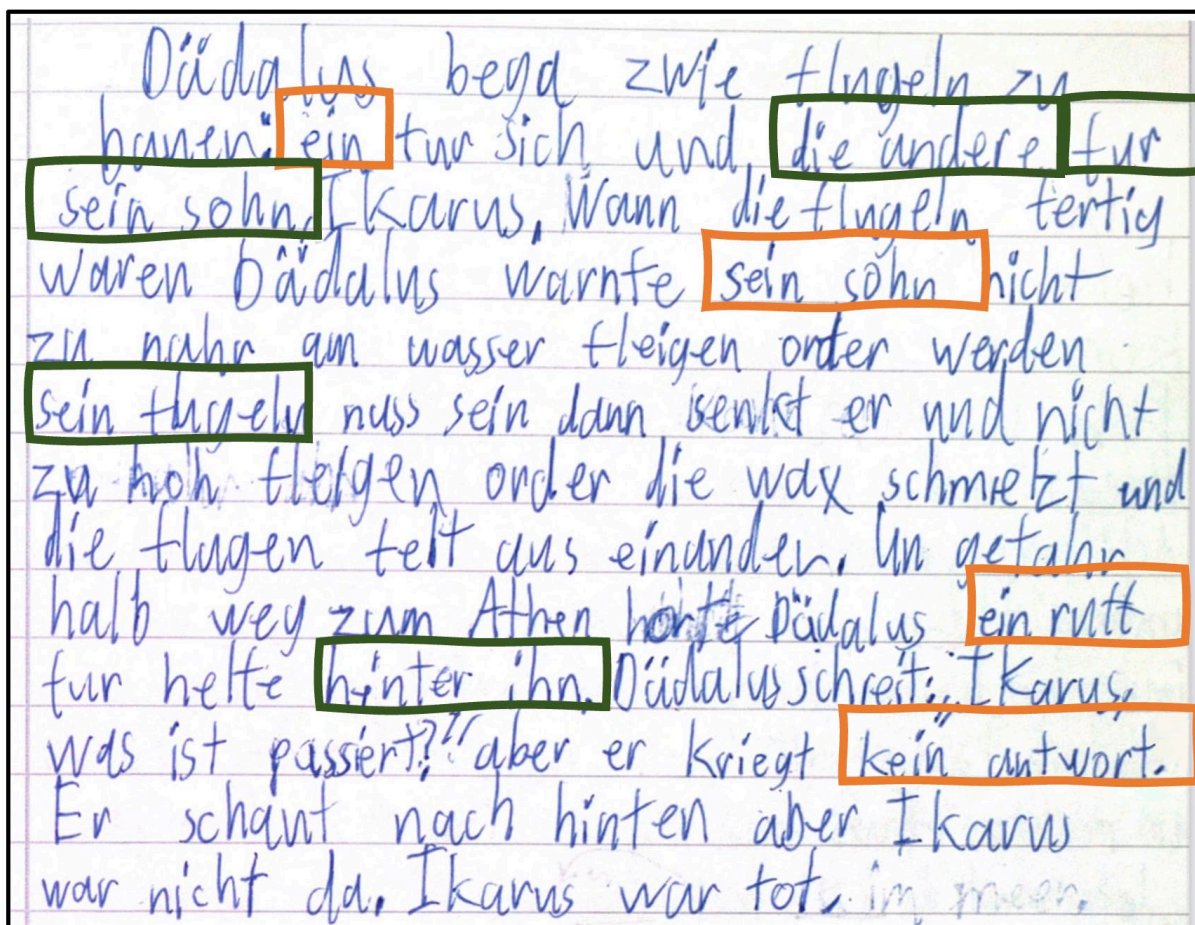 Dädalus began zwie flugeln zu
bauen: ein fur sich und die andere fur
sein sohn, Ikarus. Wann die flugeln fertig
waren Dädalus warnte sein sohn nicht
zu nahr am wasser fleigen order werden
sein flugeln nass sein dann senkt er und nicht
zu hoh fleigen order die wax schmelzt und
die flugen felt aus einander. Un gefahr
halb weg zum Athen hörte Dädalus ein ruff
fur helfe hinter ihn. Dädalus schreit: "Ikarus,
was ist passiert?!" aber er kriegt kein antwort.
Er schaut nach hinten aber Ikarus
war nicht da. Ikarus war tot. im meer.